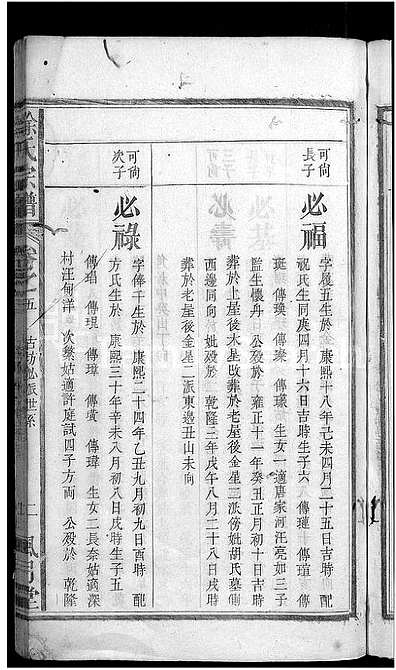 可尚長子
必福
字履五生於 康熙十八年己未四月二十五日吉時 配
祝氏生同庚四月十六日吉時生子六 傳璉 傳瑄 傳
斑 傳璞 傳璨 傳瓌 生女一適唐家河汪亮如三子
監生懷丹 公歿於 雍正十一年癸丑正月初十日吉時
葬於上屋後木星改葬於老屋後金星二派傍妣胡氏墓側
西邊同向 妣歿於 乾隆三年戊午八月二十八日戌時
葬於老屋後金星二派東邊丑山未向
可尚次子
必祿
字俸千生於 康熙二十四年乙丑九月初九日酉時 配
方氏生於 康熙三十年辛未八月初八日戌時生子五
傳瑨 傳琨 傳璋 傳璜 傳瑋 生女二長奈姑適深
村汪甸洋 次繁姑適許庭試四子方兩 公歿於 乾隆
徐氏宗譜
卷之五
世系
二
堂